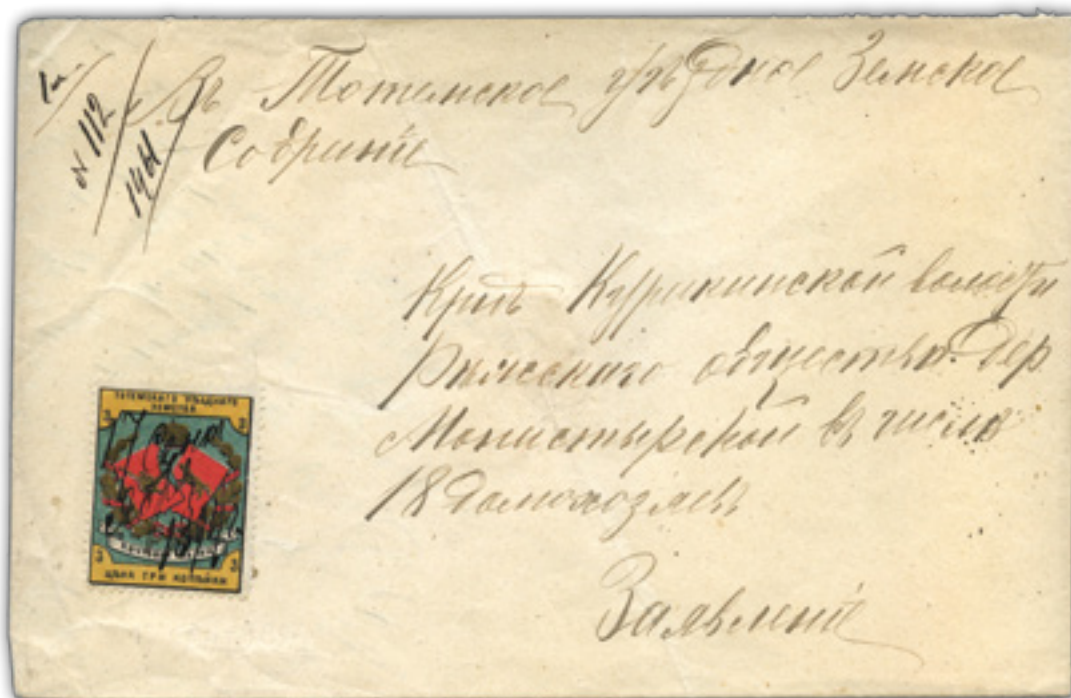 № 112
Въ Тотемское уѣздное Земское
Собрание
Крнъ Курикинской волости
общества дер
Монастырской въ числѣ
18 домохозяевъ
ТОТЕМСКАГО УѢЗДНАГО
ЗЕМСТВА
3 3
3 3
ЦѢНА ТРИ КОПѢЙКИ
Заявление